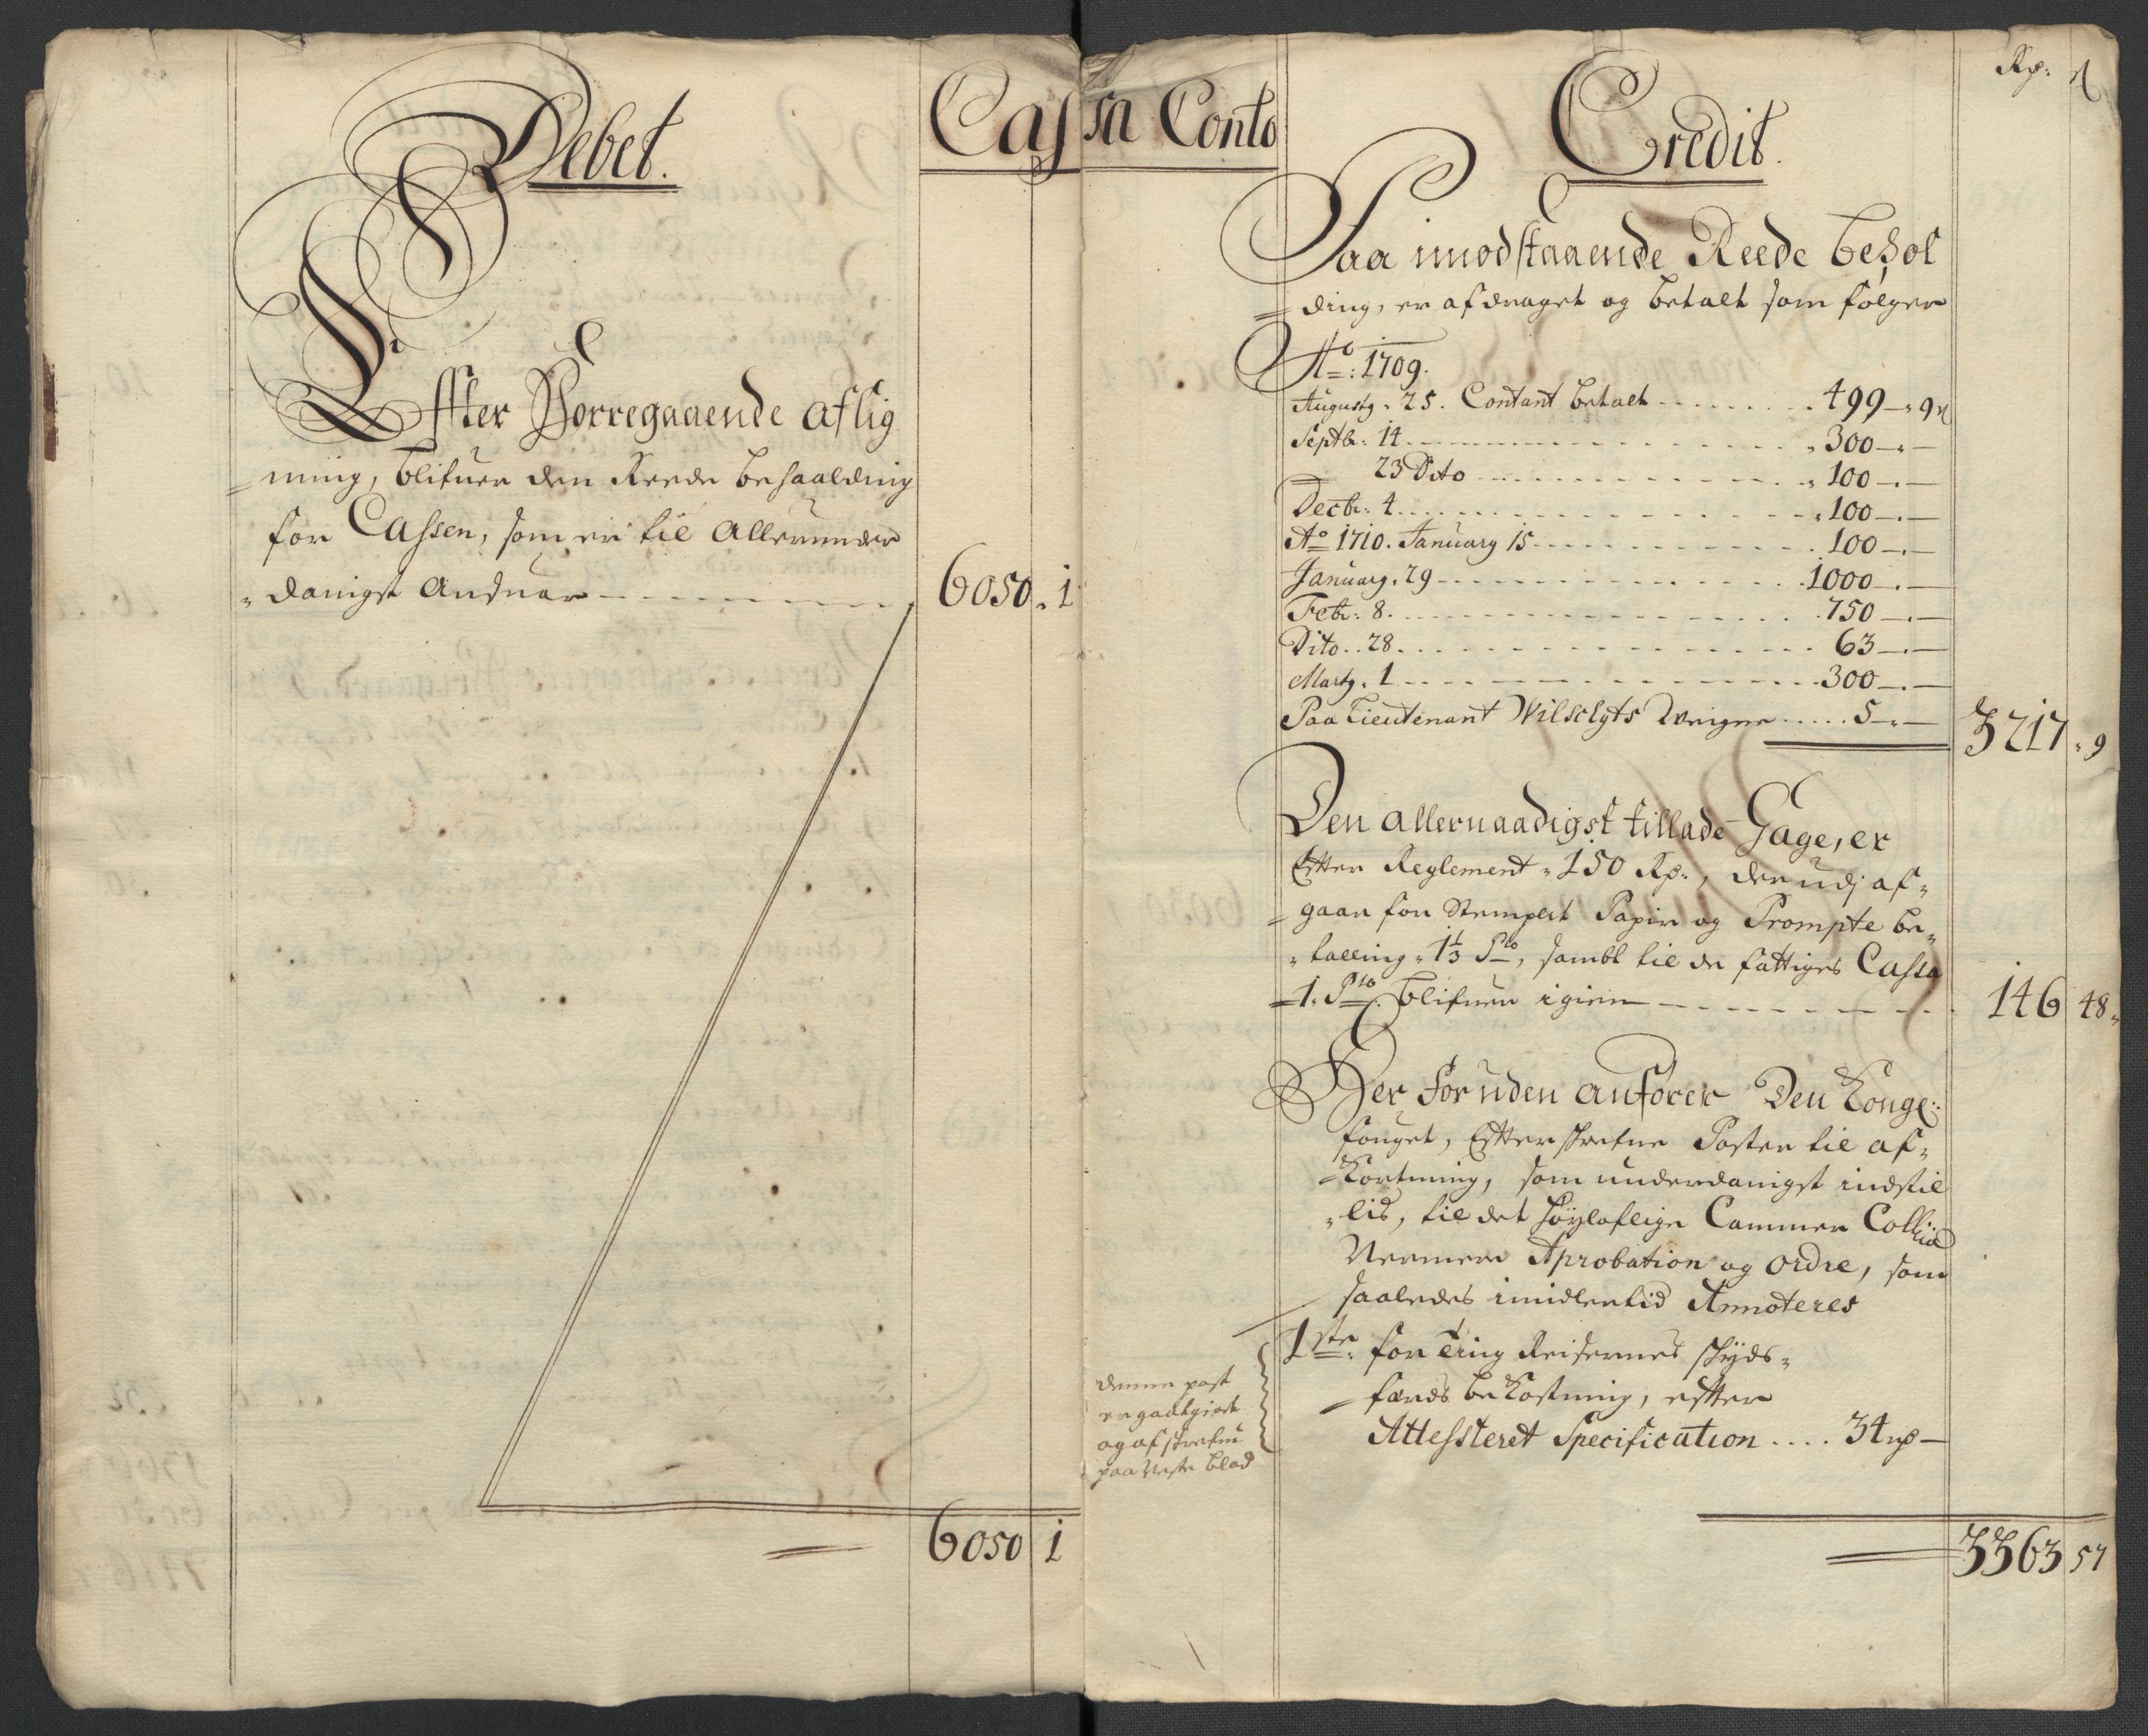 Debet.
Cassa Conto
Efter Forregaaende aflig
ning, blifuer den Reede behaalding
for Cassen, som er til Allerunder
danigst Ansuar
6050. 1
6050 1
Credit.
Rp: ß
Paa imodstaaende Reede behol
ding, er afdraget og betalt som følger
Ao: 1709.
Augusty. 25. Contant betalt 499 - 9 ß
Septbr: 14 300
23 Dito 100
Decbr: 4 100
Ao 1710. January 15 100
January. 29 1000
Febr: 8. 750
Dito. 28. 63
Marty. 1 300
Paa Lieutenant Wilschyts Weigne 5
3217. 9
Den allernaadigst tillade Gage, er
Efter Reglement 150 Rp:, derudj af-
gaar for Stemplet Papir og Prompte be-
talling 1⅓ Pto, sambt til de fattiges Cassa
1. Pto. blifuer igien
146 48
Der foruden anfører Den Konge:
fouget, Efterskrefne Poster til af-
Kortning, som underdanigst indstil
lis, til det höyloflige Cammer Collegii
Nermere Aprobation og Ordre, som
saaledes imidlertid Annoteres
1ste. for Ting Reisernes skyds-
færds bekostning, efter
Attessteret Specification .... 34 rp
denne post
er gaatgiort
og afskrefven
paa neste blad
3363 57